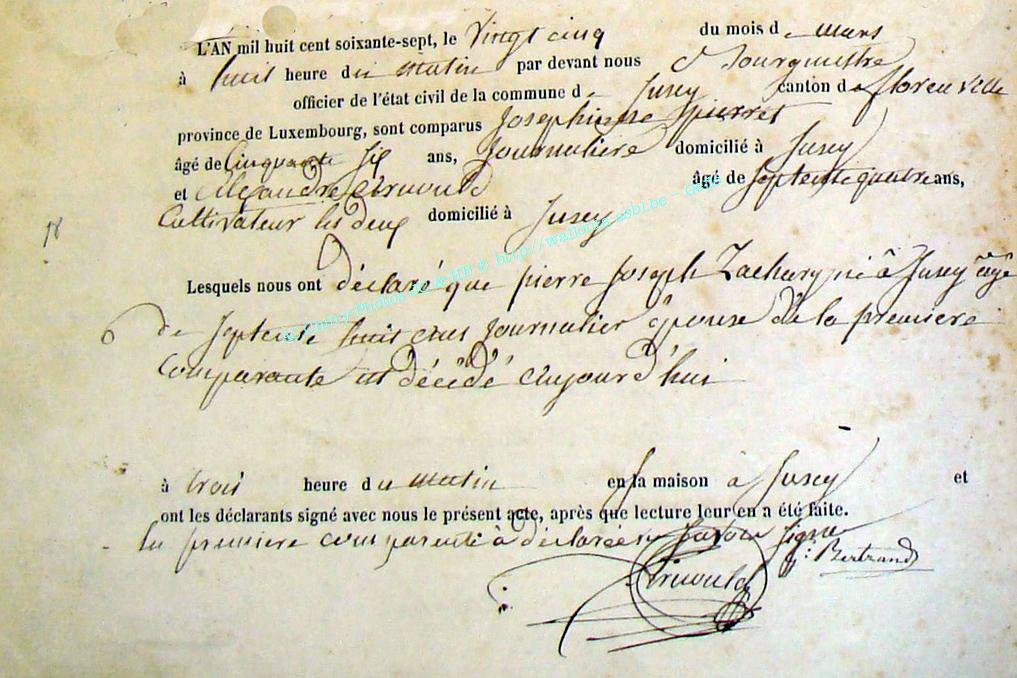 L'AN mil huit cent soixante-sept, le Vingt cinq du mois de mars
à huit heure du matin par devant nous
officier de l'état civil de la commune de Jusey canton de florenville
province de Luxembourg, sont comparus Josephine pierret
âgé de Cinquante six ans, Journaliere domicilié à Jusey
et Alexandre Arnould âgé de septente quatre ans,
Cultivateur les deux domicilié à Jusey
18
Lesquels nous ont déclaré que pierre Joseph Zachary né à Jusey âgé
de septente huit ans Journalier epouse de la premiere
Comparante est décédé aujourd'hui
à trois heure du matin en sa maison à Jusey et
ont les déclarants signé avec nous le présent acte, après que lecture leur en a été faite.
la premiere comparente à déclarée ne savoir signer
Bertrand
Arnould